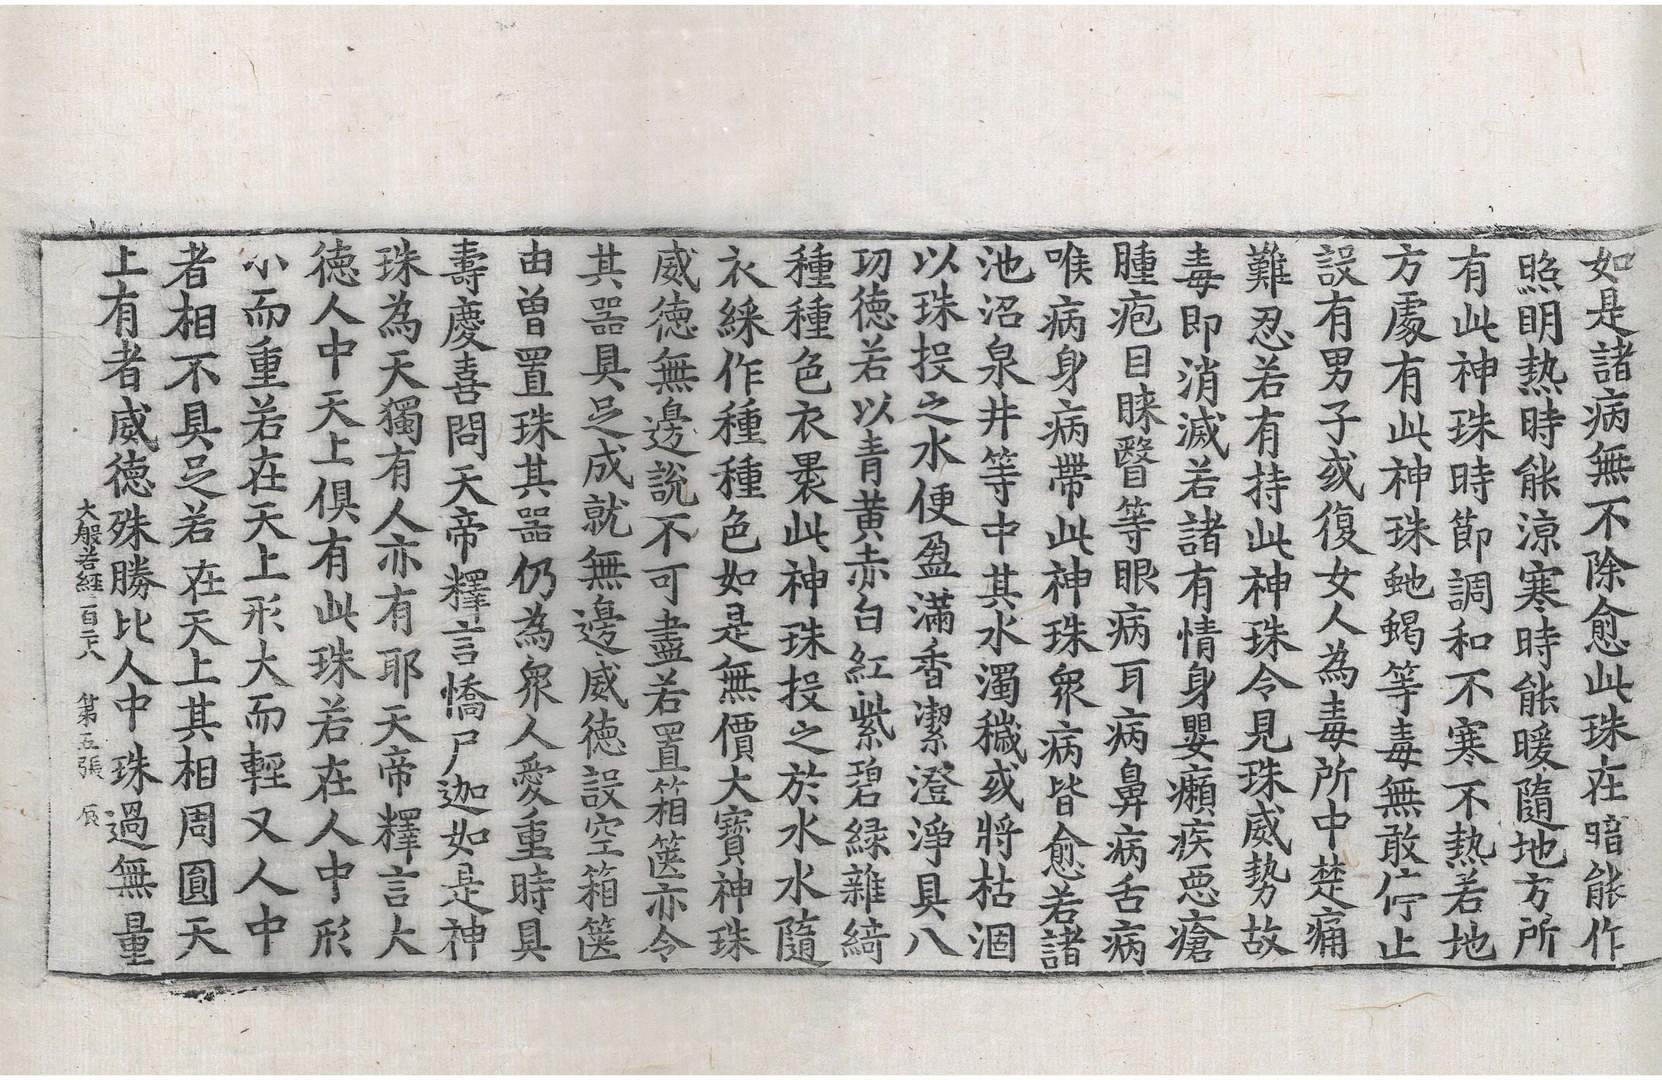 如是諸病無不除愈此珠在暗能作
照明熱時能涼寒時能暖隨地方所
有此神珠時節調和不寒不熱若地
方處有此神珠虵蝎等毒無敢停止
設有男子或復女人為毒所中楚痛
難忍若有持此神珠令見珠威勢故
毒即消滅若諸有情身嬰癩疾惡瘡
腫疱目睞瞖等眼病耳病鼻病舌病
喉病身病帶此神珠衆病皆愈若諸
池沼泉井等中其水濁穢或將枯涸
以珠投之水便盈滿香潔澄淨具八
功德若以青黃赤白紅紫碧綠雜綺
種種色衣褁此神珠投之於水水隨
衣綵作種種色如是無價大寶神珠
威德無邊說不可盡若置箱篋亦令
其器具足成就無邊威德設空箱篋
由曾置珠其器仍為衆人愛重時具
壽慶喜問天帝釋言憍尸迦如是神
珠為天獨有人亦有耶天帝釋言大
德人中天上俱有此珠若在人中形
小而重若在天上形大而輕又人中
者相不具足若在天上其相周圓天
上有者威德殊勝比人中珠過無量
大般若經 百二十八 第五張 辰